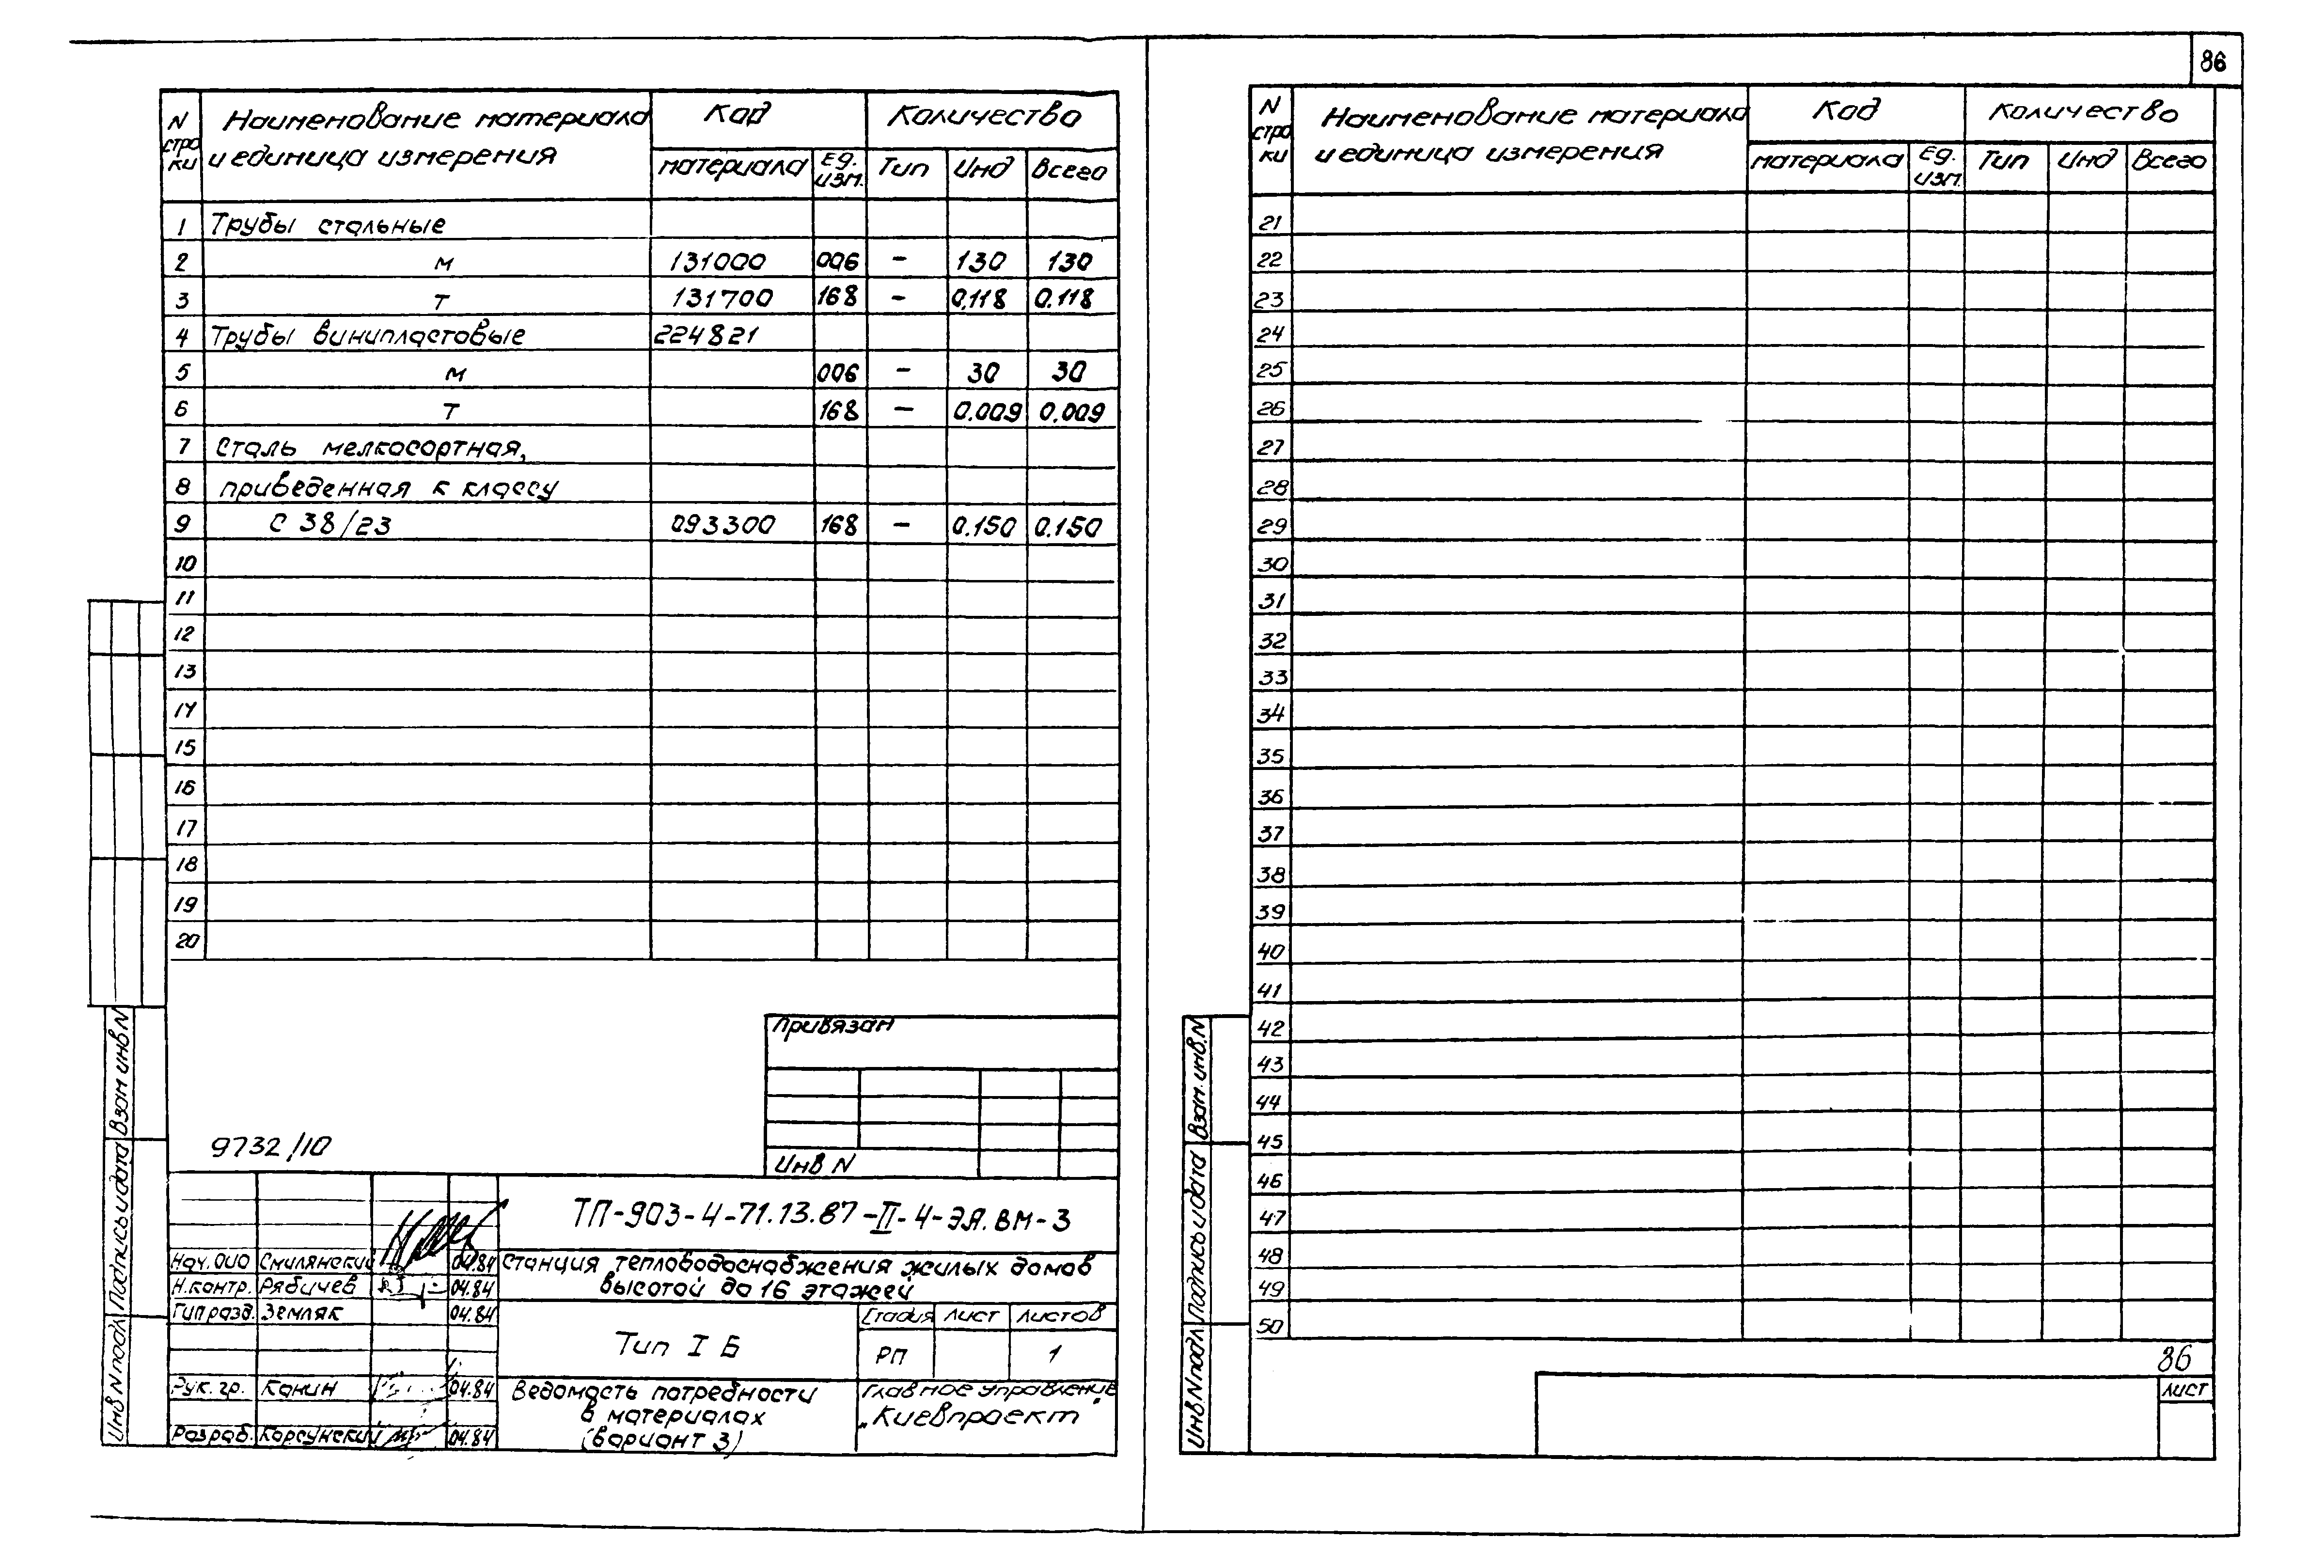 86
N строки Наименование материала и единица измерения Код Количество
материала Ед. изм. Тип Инд Всего
1 Трубы стальные
2 м 131000 006 - 130 130
3 т 131700 168 - 0,118 0.118
4 Трубы винипластовые 224821
5 м 006 - 30 30
6 т 168 - 0.009 0.009
7 Сталь мелкосортная,
8 приведенная к классу
9 С 38/23 093300 168 - 0.150 0.150
10
11
12
13
14
15
16
17
18
19
20
Привязан
Инв N
9732/10
ТП-903-4-71.13.87-II-4-ЭЯ.ВМ-3
Нач. ОИО Смилянский 04.84
Н.контр. Рябичев 04.84
Гип разд. Земляк 04.84
Рук. гр. Канин 04.84
Разраб. Корсунский 04.84
Станция тепловодоснабжения жилых домов
высотой до 16 этажей
Тип I Б
Стадия Лист Листов
РП 1
Ведомость потребности
в материалах
(вариант 3)
Главное управление
„Киевпроект"
Взам инв N
Подпись и дата
Инв N подл
N строки Наименование материала и единица измерения Код Количество
материала Ед. изм. Тип Инд Всего
21
22
23
24
25
26
27
28
29
30
31
32
33
34
35
36
37
38
39
40
41
42
43
44
45
46
47
48
49
50
Взам. инв. N
Подпись и дата
Инв. N подл
86
Лист